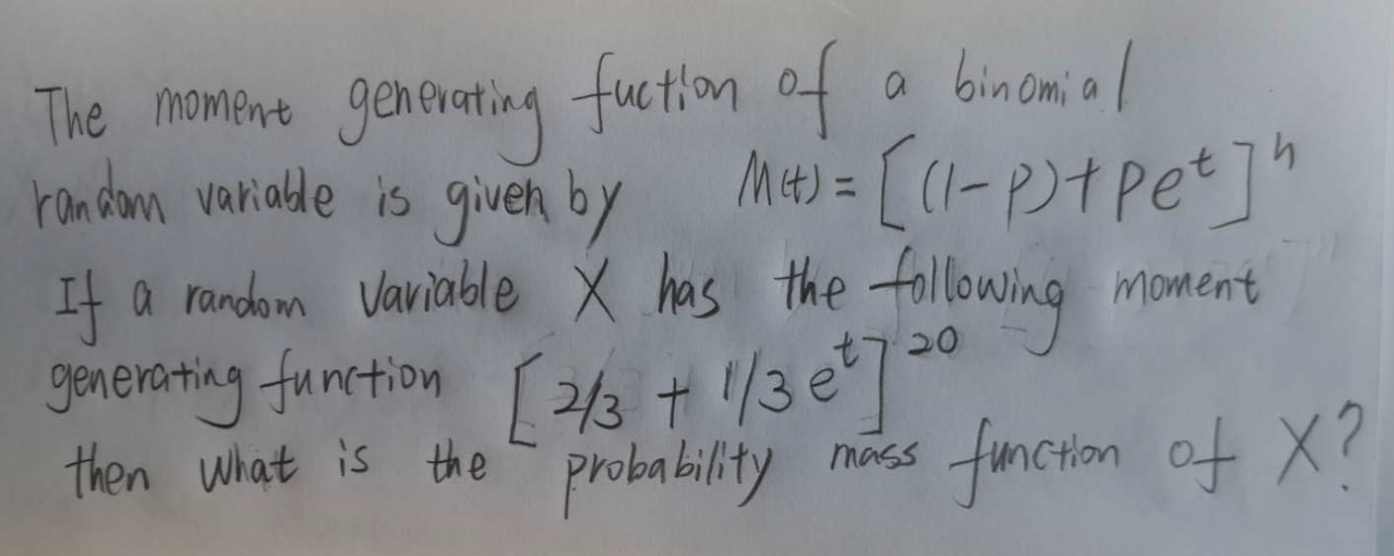 The moment generating fuction of a binomial
random variable is given by M(t) = [(1-p)+pe^t]^n
If a random variable X has the following moment
generating function [2/3 + 1/3 e^t]^20
then what is the probability mass function of X?